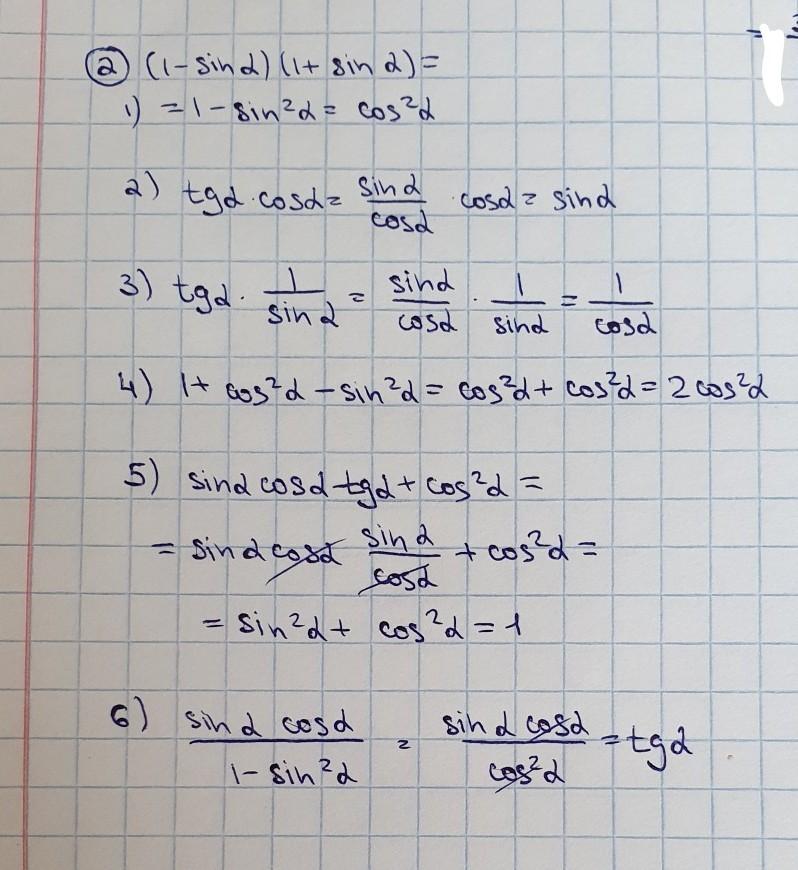 ② (1-sinα)(1+ sinα)=
1) =1-sin²α= cos²α
2) tgα·cosα= sinα/cosα · cosα= sinα
3) tgα· 1/sinα = sinα/cosα · 1/sinα = 1/cosα
4) 1+ cos²α -sin²α= cos²α+ cos²α= 2cos²α
5) sinα cosα tgα+ cos²α =
= sinα cosα sinα/cosα + cos²α=
= sin²α+ cos²α=1
6) sinα cosα/1-sin²α = sinα cosα/cos²α =tgα